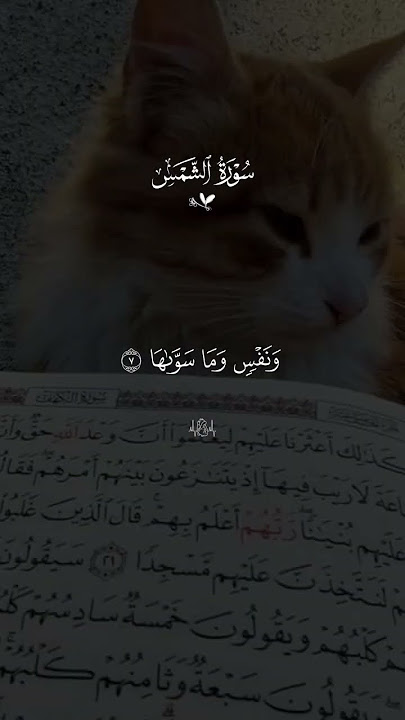 سُورَةُ ٱلشَّمْسِ
وَنَفْسٍ وَمَا سَوَّىٰهَا ٧
سُورَةُ الكَهْفِ
كَذَٰلِكَ أَعْثَرْنَا عَلَيْهِمْ لِيَعْلَمُوٓا۟ أَنَّ وَعْدَ ٱللَّهِ حَقٌّ وَأَنَّ
لَا رَيْبَ فِيهَآ إِذْ يَتَنَٰزَعُونَ بَيْنَهُمْ أَمْرَهُمْ فَقَالُ
عَلَيْهِم بُنْيَٰنًا رَّبُّهُمْ أَعْلَمُ بِهِمْ قَالَ ٱلَّذِينَ غَلَبُوا
لَنَتَّخِذَنَّ عَلَيْهِم مَّسْجِدًا ٢١ سَيَقُولُونَ
كَلْبُهُمْ وَيَقُولُونَ خَمْسَةٌ سَادِسُهُمْ كَلْ
وَيَقُولُونَ سَبْعَةٌ وَثَامِنُهُمْ كَلْبُهُمْ